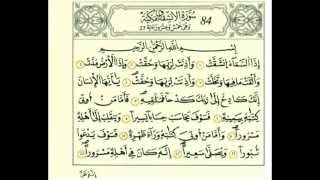 سُورَةُ الِانْشِقَاقِ مَكِّيَّة 84
بِسْمِ اللَّهِ الرَّحْمَٰنِ الرَّحِيمِ
إِذَا السَّمَاءُ انْشَقَّتْ ١ وَأَذِنَتْ لِرَبِّهَا وَحُقَّتْ ٢ وَإِذَا الْأَرْضُ مُدَّتْ ٣
وَأَلْقَتْ مَا فِيهَا وَتَخَلَّتْ ٤ وَأَذِنَتْ لِرَبِّهَا وَحُقَّتْ ٥ يَا أَيُّهَا الْإِنْسَانُ
إِنَّكَ كَادِحٌ إِلَىٰ رَبِّكَ كَدْحًا فَمُلَاقِيهِ ٦ فَأَمَّا مَنْ أُوتِيَ
كِتَابَهُ بِيَمِينِهِ ٧ فَسَوْفَ يُحَاسَبُ حِسَابًا يَسِيرًا ٨ وَيَنْقَلِبُ إِلَىٰ أَهْلِهِ
مَسْرُورًا ٩ وَأَمَّا مَنْ أُوتِيَ كِتَابَهُ وَرَاءَ ظَهْرِهِ ١٠ فَسَوْفَ يَدْعُوا
ثُبُورًا ١١ وَيَصْلَىٰ سَعِيرًا ١٢ إِنَّهُ كَانَ فِي أَهْلِهِ مَسْرُورًا ١٣